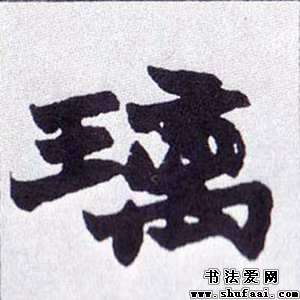 璃
书法爱网
www.shufaai.com